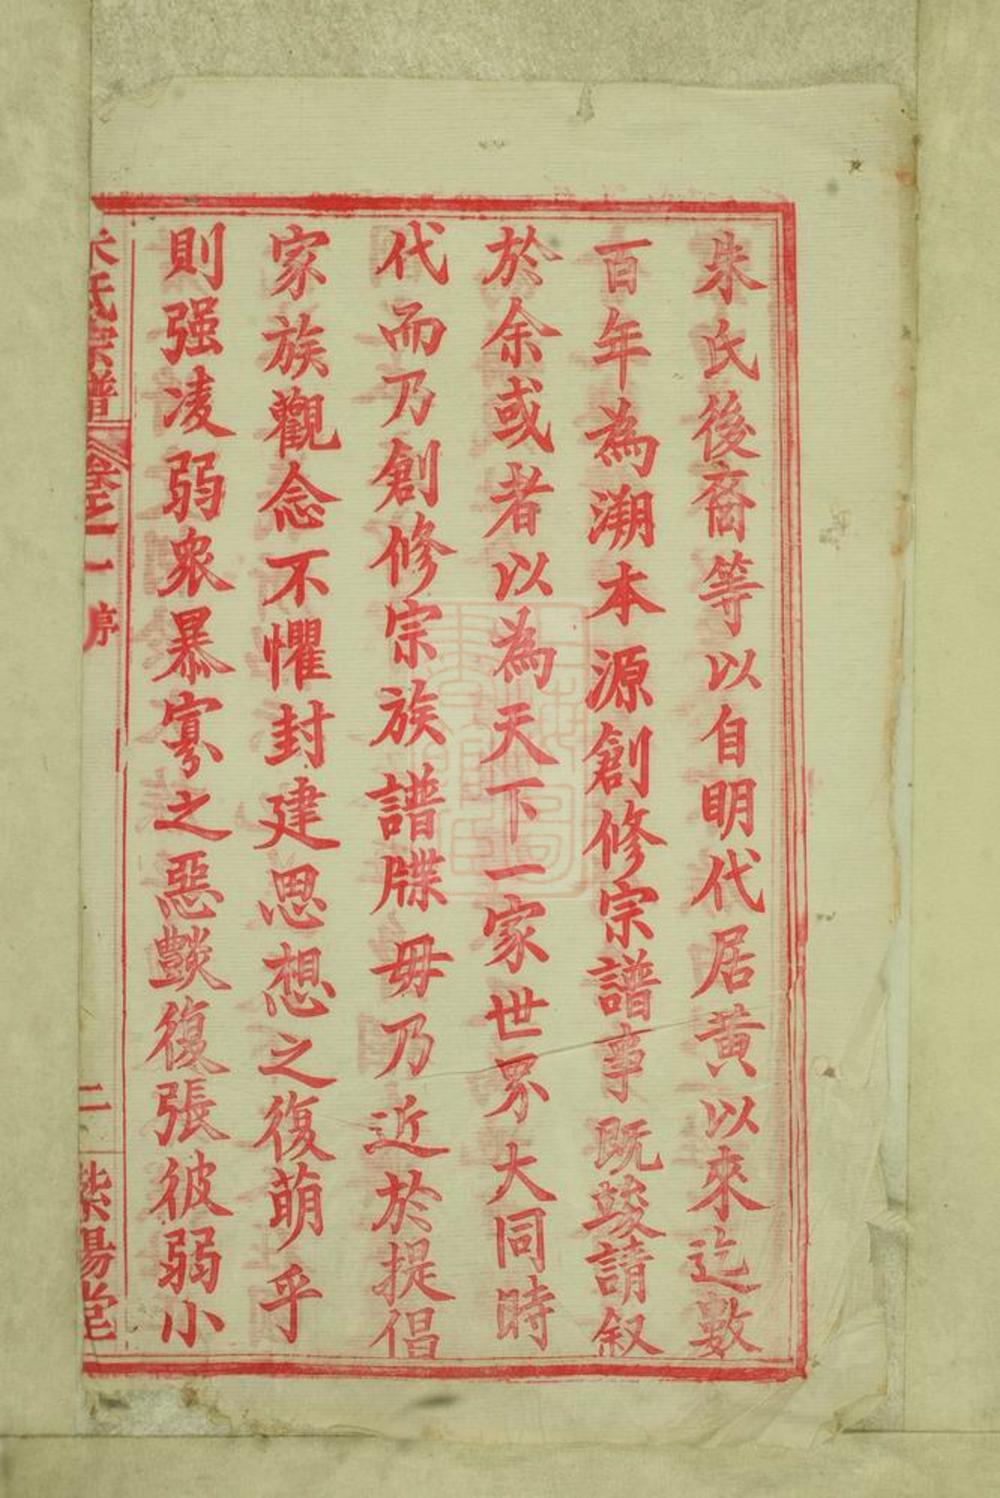 朱氏後裔等以自明代居黄以來迄數
百年為溯本源創修宗譜事既竣請叙
於余或者以為天下一家世界大同時
代而乃創修宗族譜牒毋乃近於提倡
家族觀念不懼封建思想之復萌乎
則强凌弱衆暴寡之惡燄復張彼弱小
朱氏宗譜 卷之一 序 二 紫陽堂